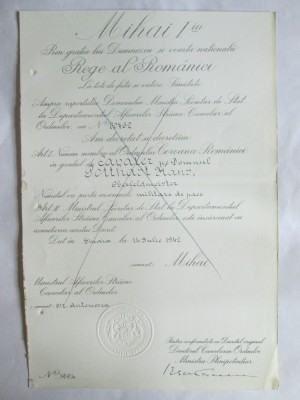 Mihai I^iu
Prin grația lui Dumnezeu și voința națională
Rege al României
La toți de față și viitori, Sănătate
Asupra raportului Domnului Ministru Secretar de Stat
la Departamentul Afacerilor Străine Cancelar al
Ordinelor cu No
Am decretat și decretăm
Art. I. Numim membru al Ordinului Coroana României
în gradul de Cavaler pe Domnul
Potthast Hans,
Oberfeldmeister
Numitul va purta însemnele militare de pace
Art. II. Ministrul Secretar de Stat la Departamentul
Afacerilor Străine Cancelar al Ordinelor este însărcinat cu
Dat în Sinaia la Iulie 1942
semnat: Mihai
Ministrul Afacerilor Străine
Cancelar al Ordinelor
semnat: M. Antonescu
Pentru conformitate cu Decretul original
Directorul Cancelariei Ordinelor
Ministru Plenipotențiar
No